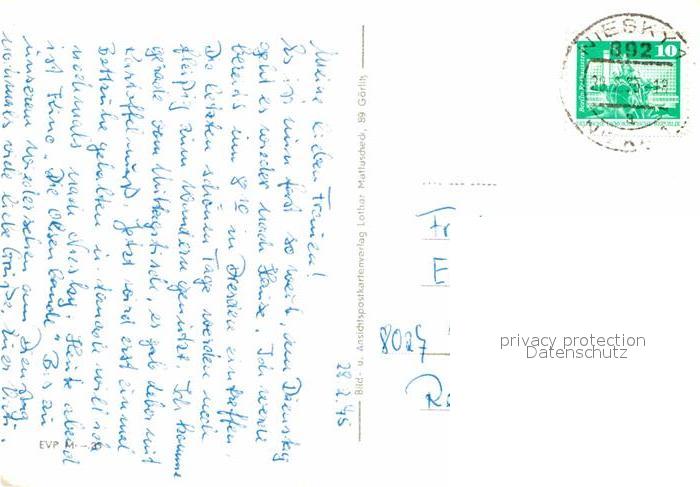 28.2.75
Meine lieben Trauen!
Es ist nun fast so weit, am Dienstag
geht es wieder nach Hause. Ich werde
bereits um 8 in Dresden eintreffen.
Die letzten schönen Tage werden noch
fleißig zum Wandern genutzt. Ich komme
gerade vom Mittagstisch, es gab Leber mit
Kartoffelmus. Jetzt wird erst einmal
Bettruhe gehalten u. danach will ich
nochmals nach Niesky. Heute abend
ist Kino "Die Olsenbande". Bis zu
unserem Wiedersehen am Dienstag
nochmals viele liebe Grüße, Euer
EVP M
Bild- u. Ansichtspostkartenverlag Lothar Mattuscheck, 89 Görlitz
NIESKY
892
10
Berlin, Rathausstraße
Fr
E
8027
R
privacy protection
Datenschutz